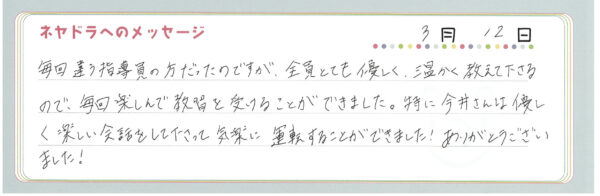 ネヤドラへのメッセージ
3月 12日
毎回違う指導員の方だったのですが、全員とても優しく、温かく教えて下さる
ので、毎回楽しんで教習を受けることができました。特に今井さんは優し
く楽しい会話をして下さって気楽に運転することができました！ありがとうござい
ました！